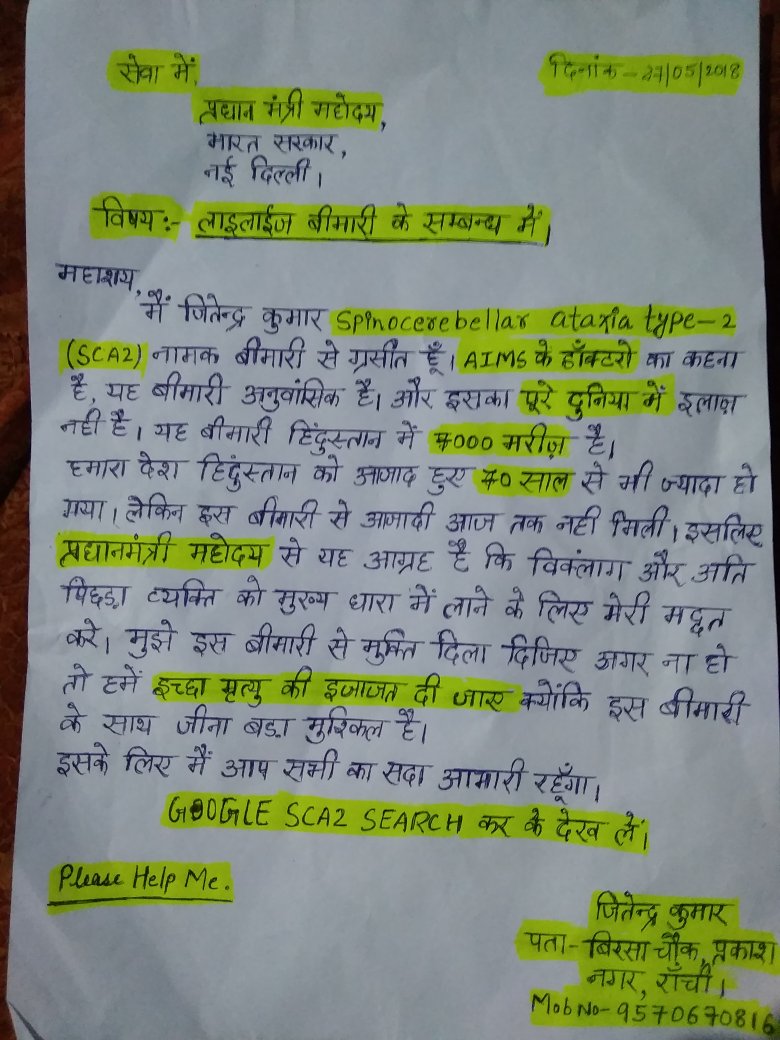 सेवा में,
दिनांक - 27/05/2018
प्रधान मंत्री महोदय,
भारत सरकार,
नई दिल्ली।
विषय:- लाइलाईज बीमारी के सम्बन्ध में।
महाशय,
मैं जितेन्द्र कुमार Spinocerebellar ataxia type-2
(SCA2) नामक बीमारी से ग्रसीत हूँ। AIMS के डॉक्टरो का कहना
है, यह बीमारी अनुवांसिक है। और इसका पूरे दुनिया में इलाज़
नही है। यह बीमारी हिंदुस्तान में 7000 मरीज़ है।
हमारा देश हिंदुस्तान को आजाद हुए 70 साल से भी ज्यादा हो
गया। लेकिन इस बीमारी से आजादी आज तक नही मिली। इसलिए
प्रधानमंत्री महोदय से यह आग्रह है कि विकंलाग और अति
पिछड़ा व्यक्ति को मुख्य धारा में लाने के लिए मेरी मद्दत
करे। मुझे इस बीमारी से मुक्ति दिला दिजिए अगर ना हो
तो हमें इच्छा मृत्यु की इजाजत दी जाए क्योंकि इस बीमारी
के साथ जीना बड़ा मुश्किल है।
इसके लिए मैं आप सभी का सदा आभारी रहूँगा।
GOOGLE SCA2 SEARCH कर के देख लें।
Please Help Me.
जितेन्द्र कुमार
पता- बिरसा चौक, प्रकाश
नगर, राँची।
Mob No- 9570670816